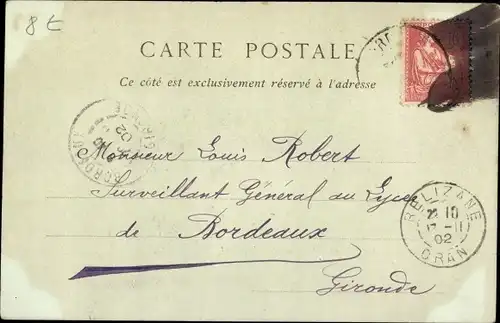 8 t
CARTE POSTALE
Ce côté est exclusivement réservé à l'adresse
Monsieur Louis Robert
Surveillant Général au Lycée
de Bordeaux
Gironde
RELIZANE
22 10
17-11
02
ORAN
BORDEAUX
GIRONDE
02